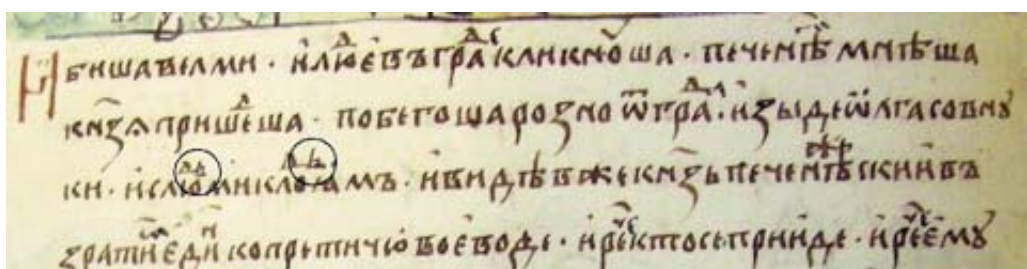 бишавелми · и҆лю́ⷣе҆въграⷣ кликнꙋша · печенѣⷥ мнѣша
кн҃зѧпришеⷣша · побегошарозноѿграⷣ · и҆зыдеѿлгасовнꙋ
ки · и҆слюⷣмиклоⷣꙗмъ · и҆видѣвжекн҃зьпеченѣскии҆въ
зратиⷭе҆диⷩ҇ копрѣтичю́вое҆воде · и҆реⷱктосеприиде · и҆реⷱе҆мꙋ